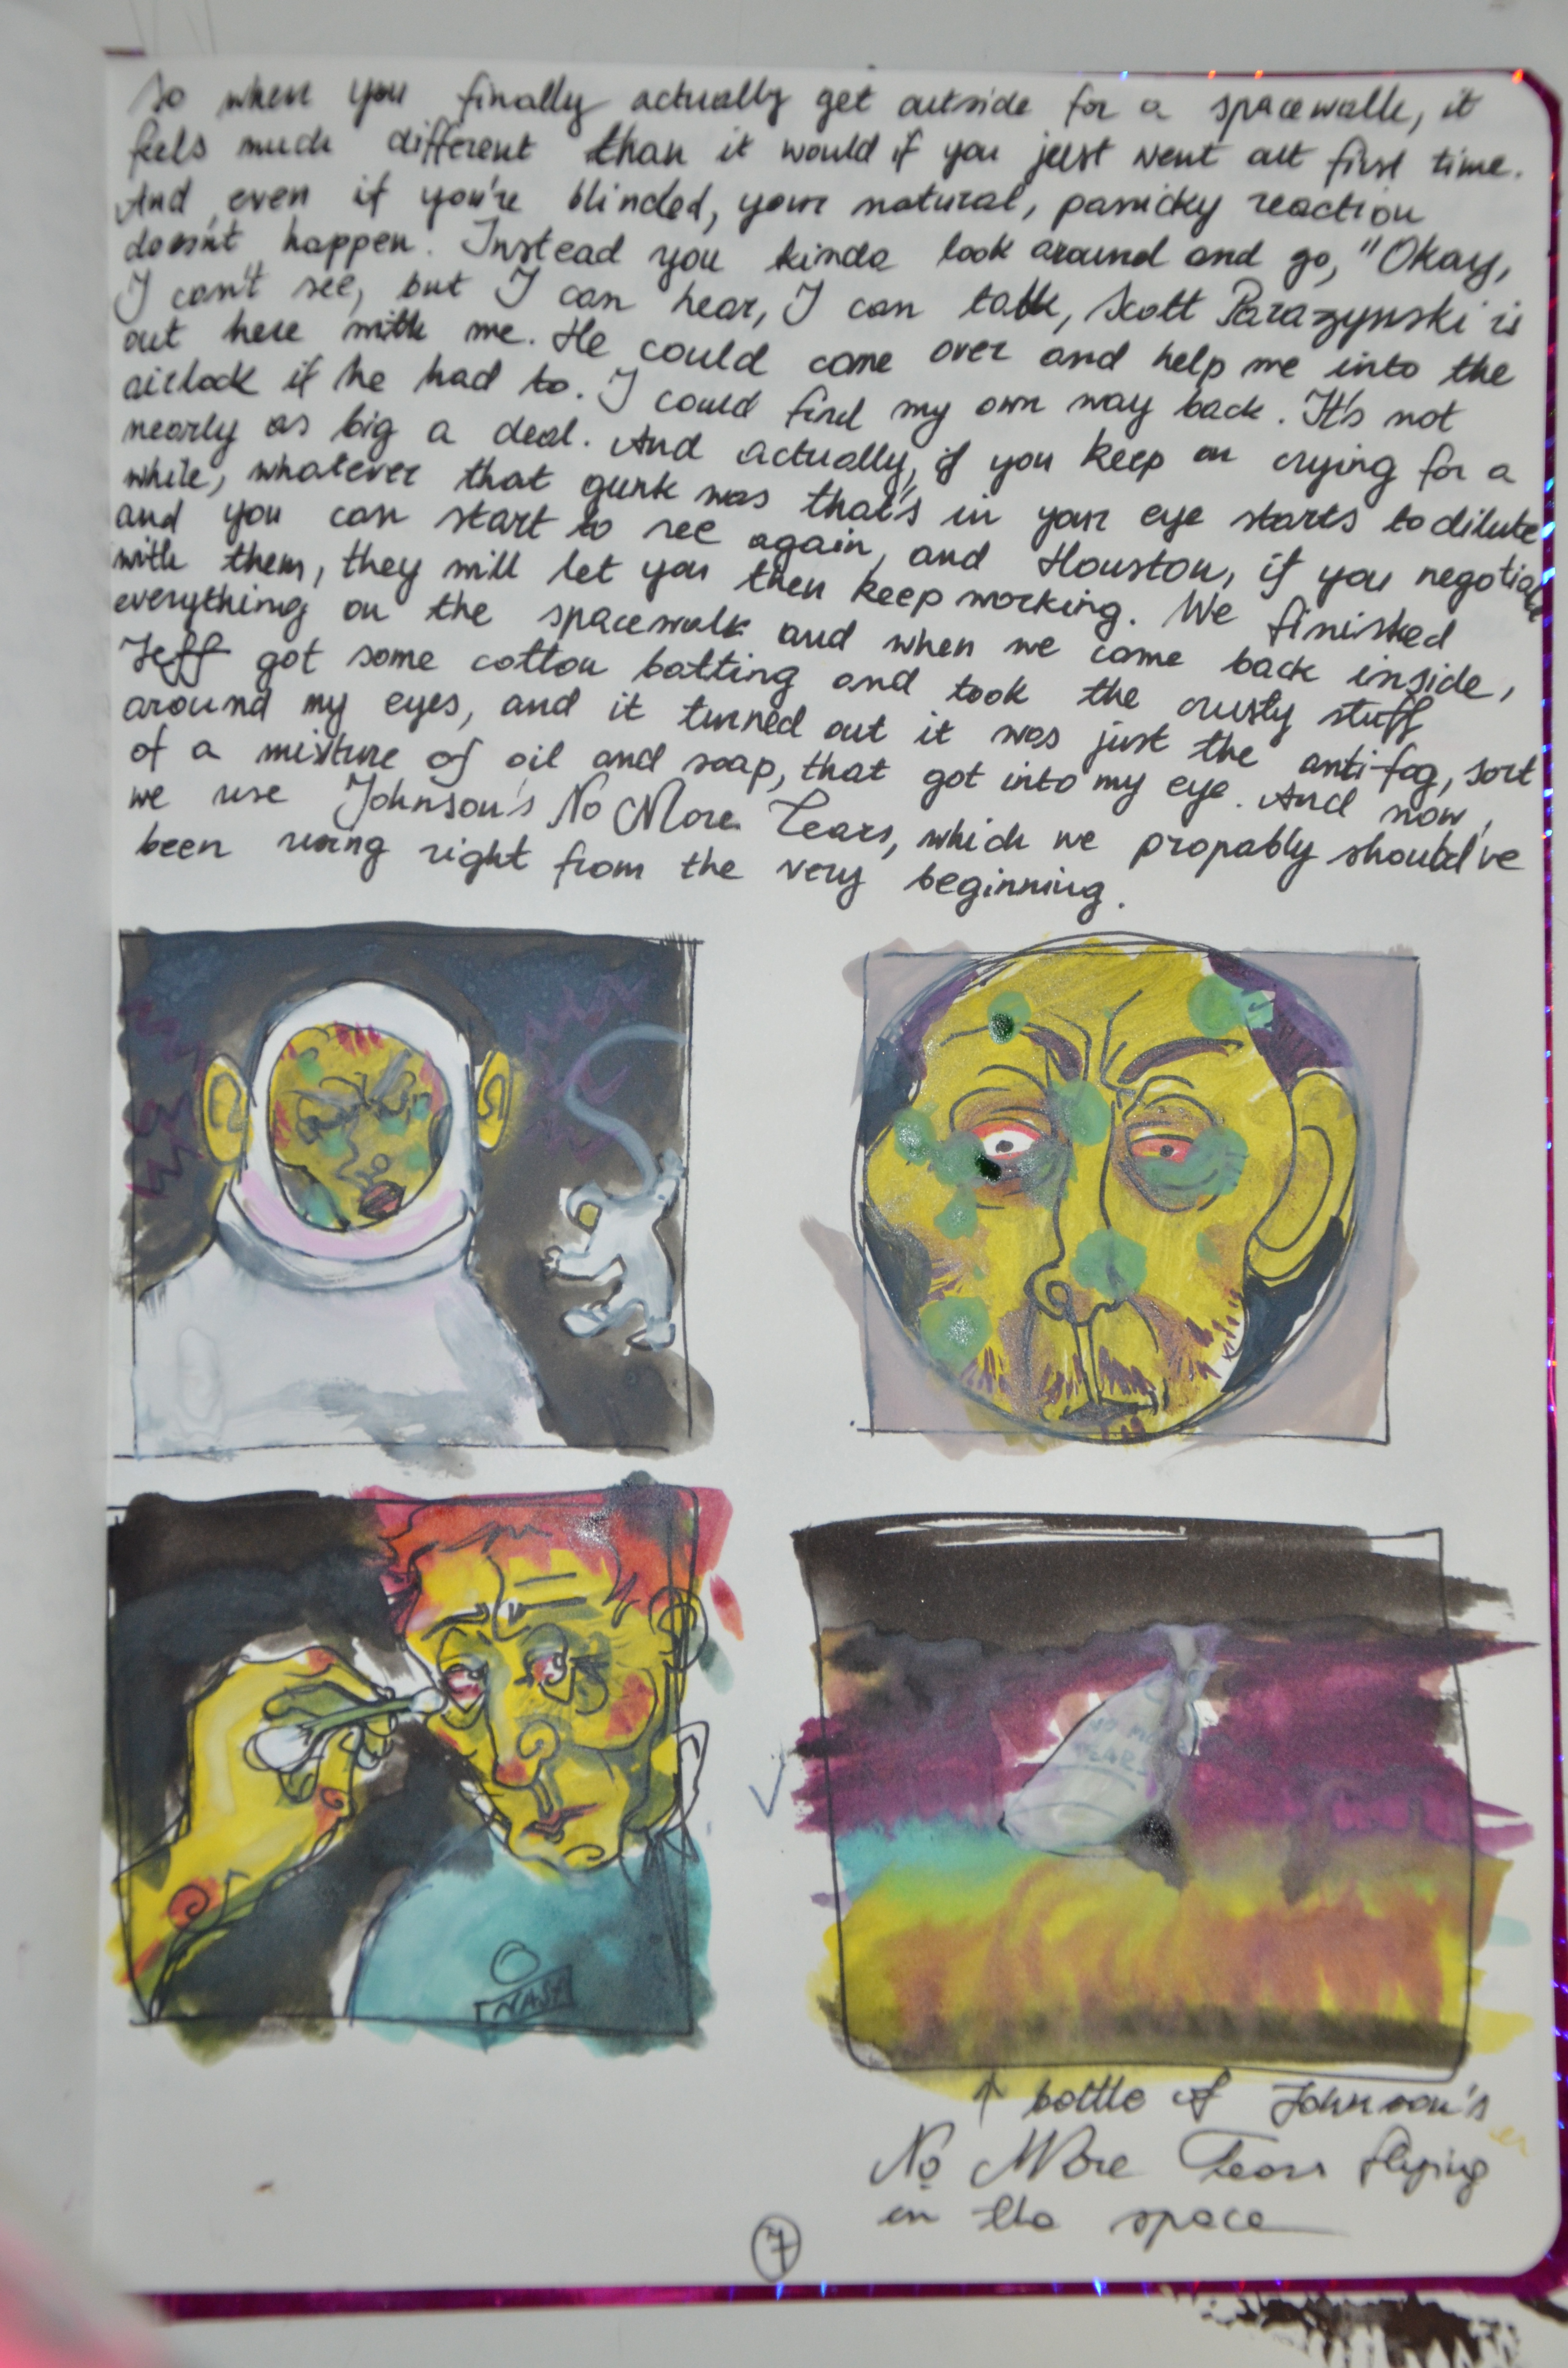 So when you finally actually get outside for a spacewalk, it
feels much different than it would if you just went out first time.
And even if you're blinded, your natural, panicky reaction
doesn't happen. Instead you kinda look around and go, "Okay,
I can't see, but I can hear, I can talk, Scott Parazynski is
out here with me. He could come over and help me into the
airlock if he had to. I could find my own way back. It's not
nearly as big a deal. And actually, if you keep on crying for a
while, whatever that gunk was that's in your eye starts to dilute
and you can start to see again, and Houston, if you negotiate
with them, they will let you then keep working. We finished
everything on the spacewalk and when we came back inside,
Jeff got some cotton batting and took the crusty stuff
around my eyes, and it turned out it was just the anti-fog, sort
of a mixture of oil and soap, that got into my eye. And now,
we use Johnson's No More Tears, which we propably should've
been using right from the very beginning.
NO MORE
TEARS
NASA
↑ bottle of Johnson's
No More Tears flying
in the space
7